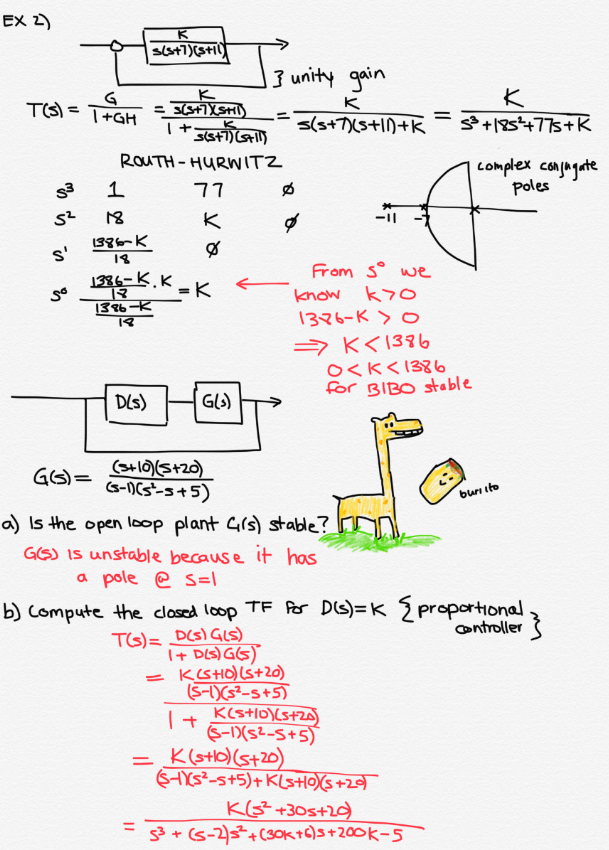 EX 2)
K / s(s+7)(s+11)
} unity gain
T(s) = G / 1+GH = K / s(s+7)(s+11) / 1 + K / s(s+7)(s+11) = K / s(s+7)(s+11)+K = K / s³+18s²+77s+K
ROUTH-HURWITZ
s³ 1 77 ∅
s² 18 K ∅
s¹ 1386-K / 18 ∅
s⁰ 1386-K / 18 · K / 1386-K / 18 = K
complex conjugate
poles
-11 -7
From s⁰ we
know K>0
1386-K > 0
⟹ K<1386
0<K<1386
for BIBO stable
D(s) G(s)
G(s) = (s+10)(s+20) / (s-1)(s²-s+5)
burrito
a) Is the open loop plant G(s) stable?
G(s) is unstable because it has
a pole @ s=1
b) Compute the closed loop TF for D(s)=K { proportional
controller }
T(s) = D(s)G(s) / 1+ D(s)G(s)
= K(s+10)(s+20) / (s-1)(s²-s+5) / 1 + K(s+10)(s+20) / (s-1)(s²-s+5)
= K(s+10)(s+20) / (s-1)(s²-s+5)+K(s+10)(s+20)
= K(s²+30s+20) / s³ + (s-2)s²+(30K+6)s+200K-5